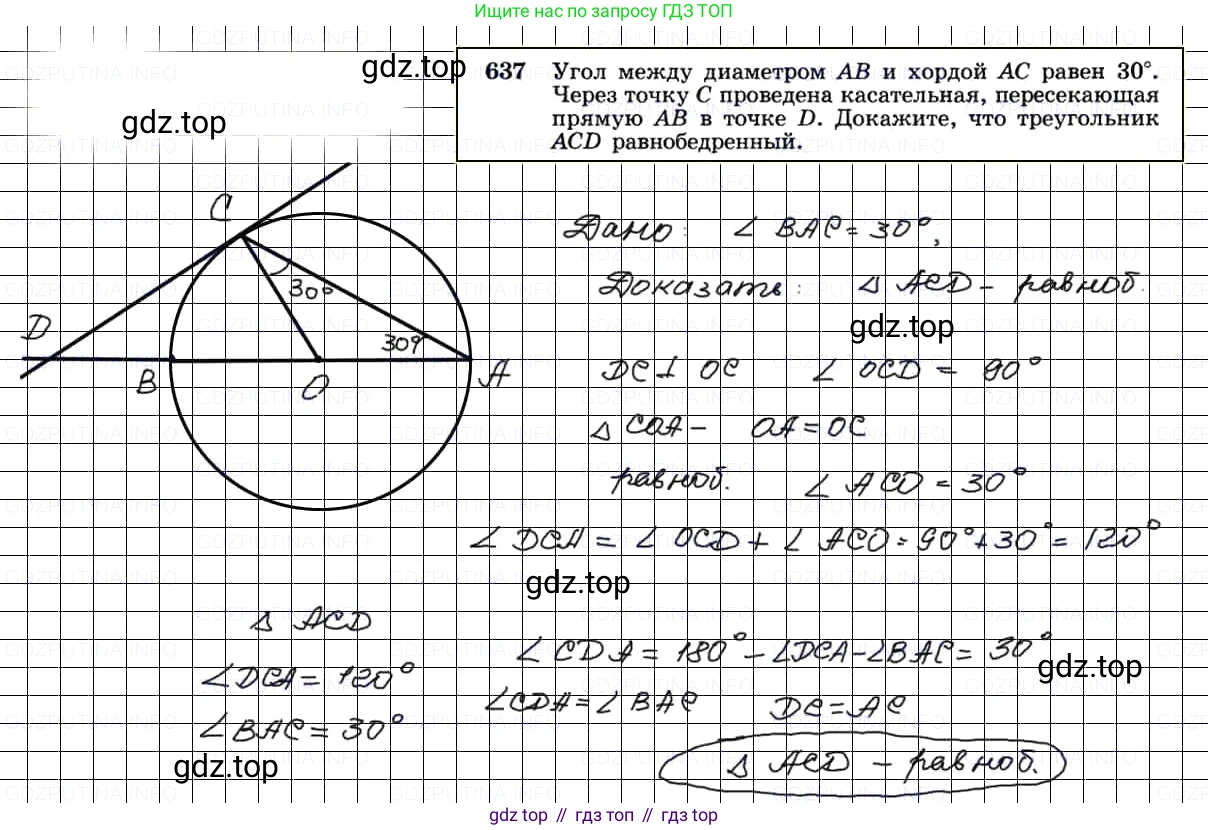 Ищите нас по запросу ГДЗ ТОП
637 Угол между диаметром AB и хордой AC равен 30°.
Через точку C проведена касательная, пересекающая
прямую AB в точке D. Докажите, что треугольник
ACD равнобедренный.
gdz.top
gdz.top
C
30°
30°
D
B
O
A
Дано: ∠ BAC = 30°,
Доказать: △ ACD - равноб.
gdz.top
DC ⊥ OC ∠ OCD = 90°
△ COA - OA = OC
равноб. ∠ ACO = 30°
∠ DCA = ∠ OCD + ∠ ACO = 90° + 30° = 120°
gdz.top
△ ACD
∠ DCA = 120°
∠ BAC = 30°
gdz.top
∠ CDA = 180° - ∠DCA - ∠BAC = 30°
gdz.top
∠CDA = ∠ BAC DC = AC
△ ACD - равноб.
GDZPUTINA.INFO
gdz.top // гдз топ // gdz.top